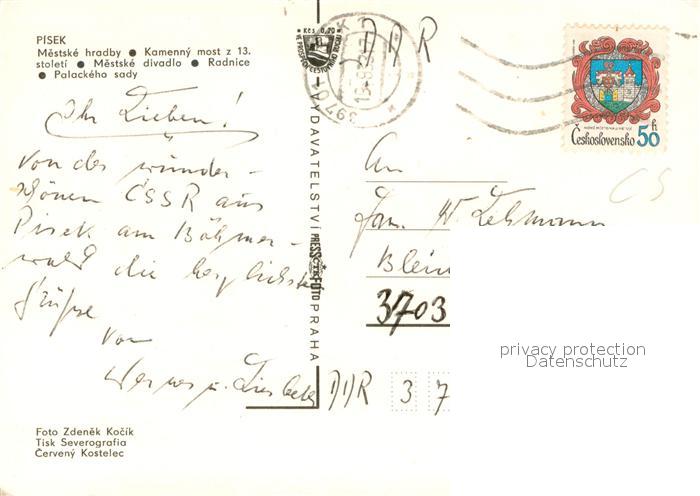 PÍSEK
Městské hradby ● Kamenný most z 13.
století ● Městské divadlo ● Radnice
● Palackého sady
Ihr Lieben!
Von der wunder-
schönen ČSSR aus
Pisek am Böhmer-
wald die herzlichsten
Grüße
von
Werner u.
Foto Zdeněk Kočík
Tisk Severografia
Červený Kostelec
Kčs 0,20
VYDAVATELSTVÍ PRESSFOTO PRAHA
397 01
DDR
Československo 50 h
CS
An
Fam. W. Lehmann
3703
DDR 3 7
privacy protection
Datenschutz